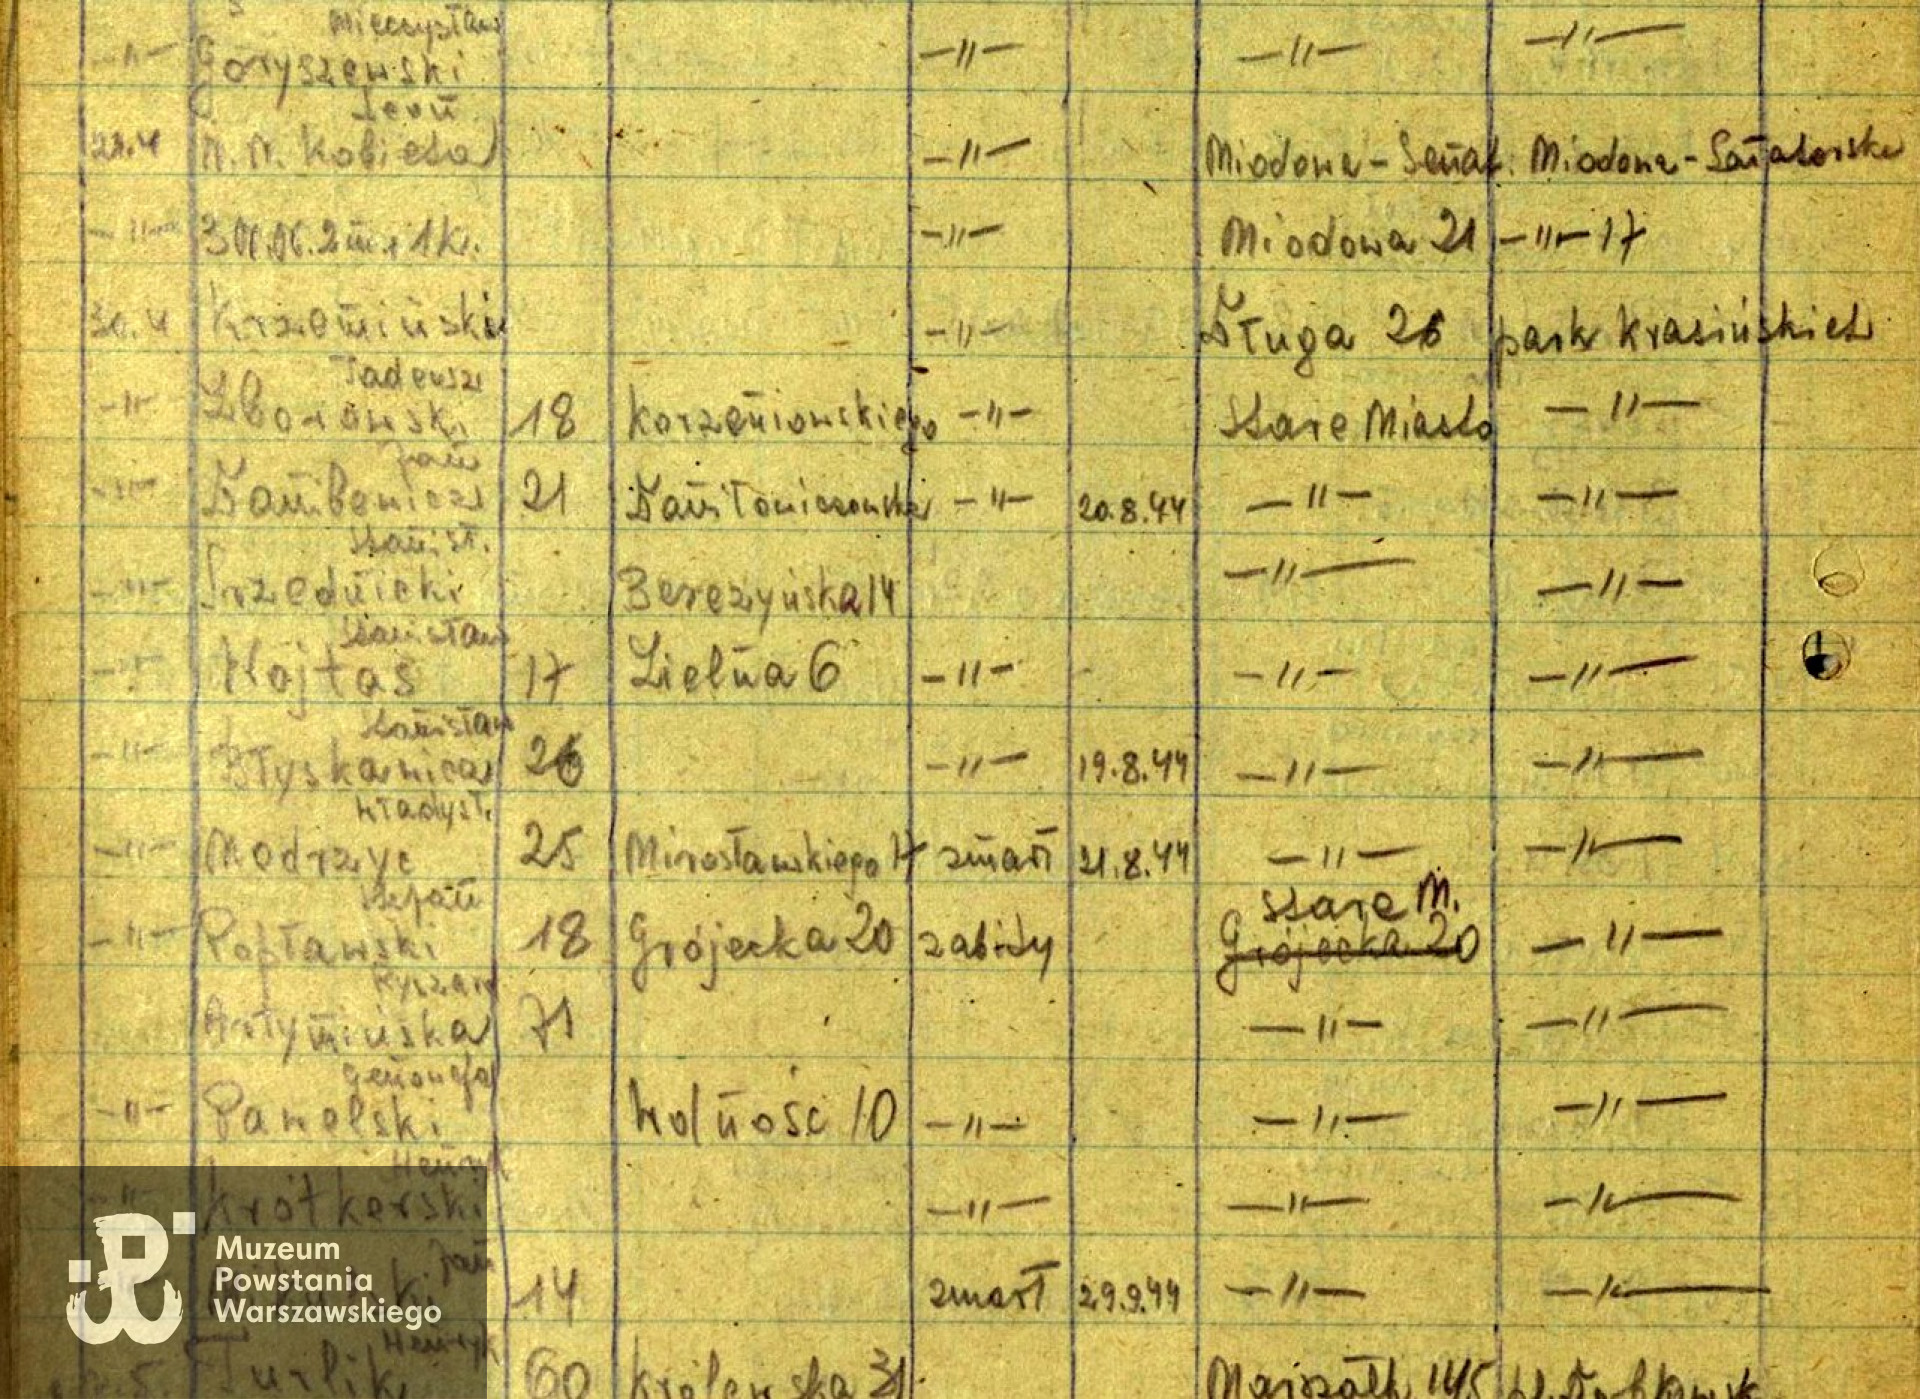 Mieczysław
—"— Goryszewski —"— —"— —"—
Leon
29.4 N.N. Kobieta —"— Miodowa - Senat. Miodowa - Sanatorska
—"— 3 N.N. 2 m. i 1 k. —"— Miodowa 21 —"— 17
30.4 Krzemiński —"— Długa 26 park Krasińskich
Tadeusz
—"— Zborowski 18 Korzeniowskiego —"— Stare Miasto —"—
Jan
—"— 21 —"— 20.8.44 —"— —"—
Stanisł.
—"— Średnicki Berezyńska 14 —"— —"—
Stanisław
—"— Wojtas 17 Zielna 6 —"— —"— —"—
Stanisław
—"— Błyskawica 26 —"— 19.8.44 —"— —"—
Władysł.
—"— Modrzyc 25 Mirosławskiego 17 zmarł 21.8.44 —"— —"—
Stefan Stare M.
—"— Popławski 18 Grójecka 20 zabity Grójecka 20 —"—
Ryszard
Artymińska 71 —"— —"—
Genowefa
—"— Pawelski Wolność 10 —"— —"— —"—
Henryk
—"— Krótkerski —"— —"— —"—
Jan
14 zmarł 29.9.44 —"— —"—
Henryk
Turlik 60 Królewska 31 Marszałk 145
Muzeum
Powstania
Warszawskiego